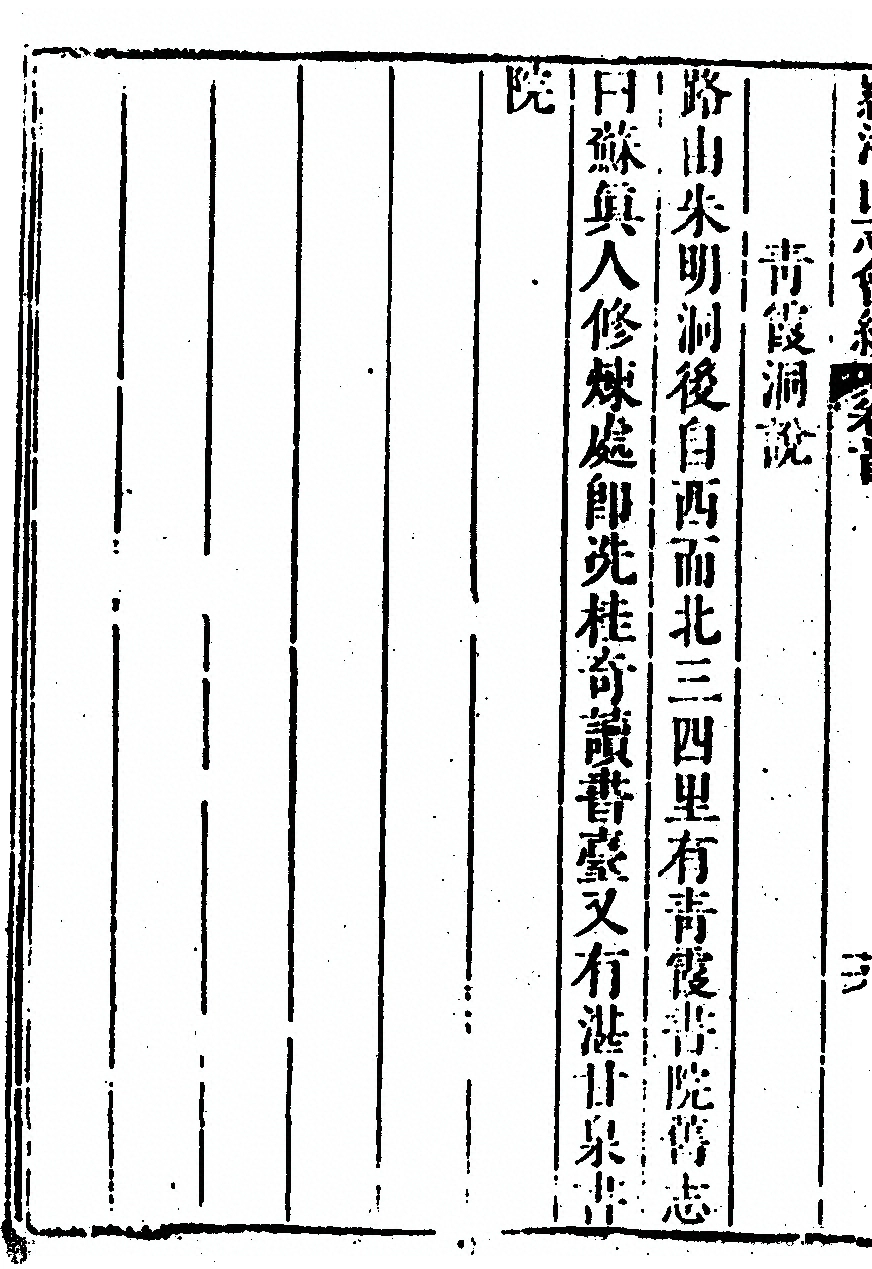 青霞洞說
路由朱明洞後自西而北三四里有青霞書院舊志
曰蘇真人修煉處卽洗桂奇讀書臺又有湛甘泉書
院